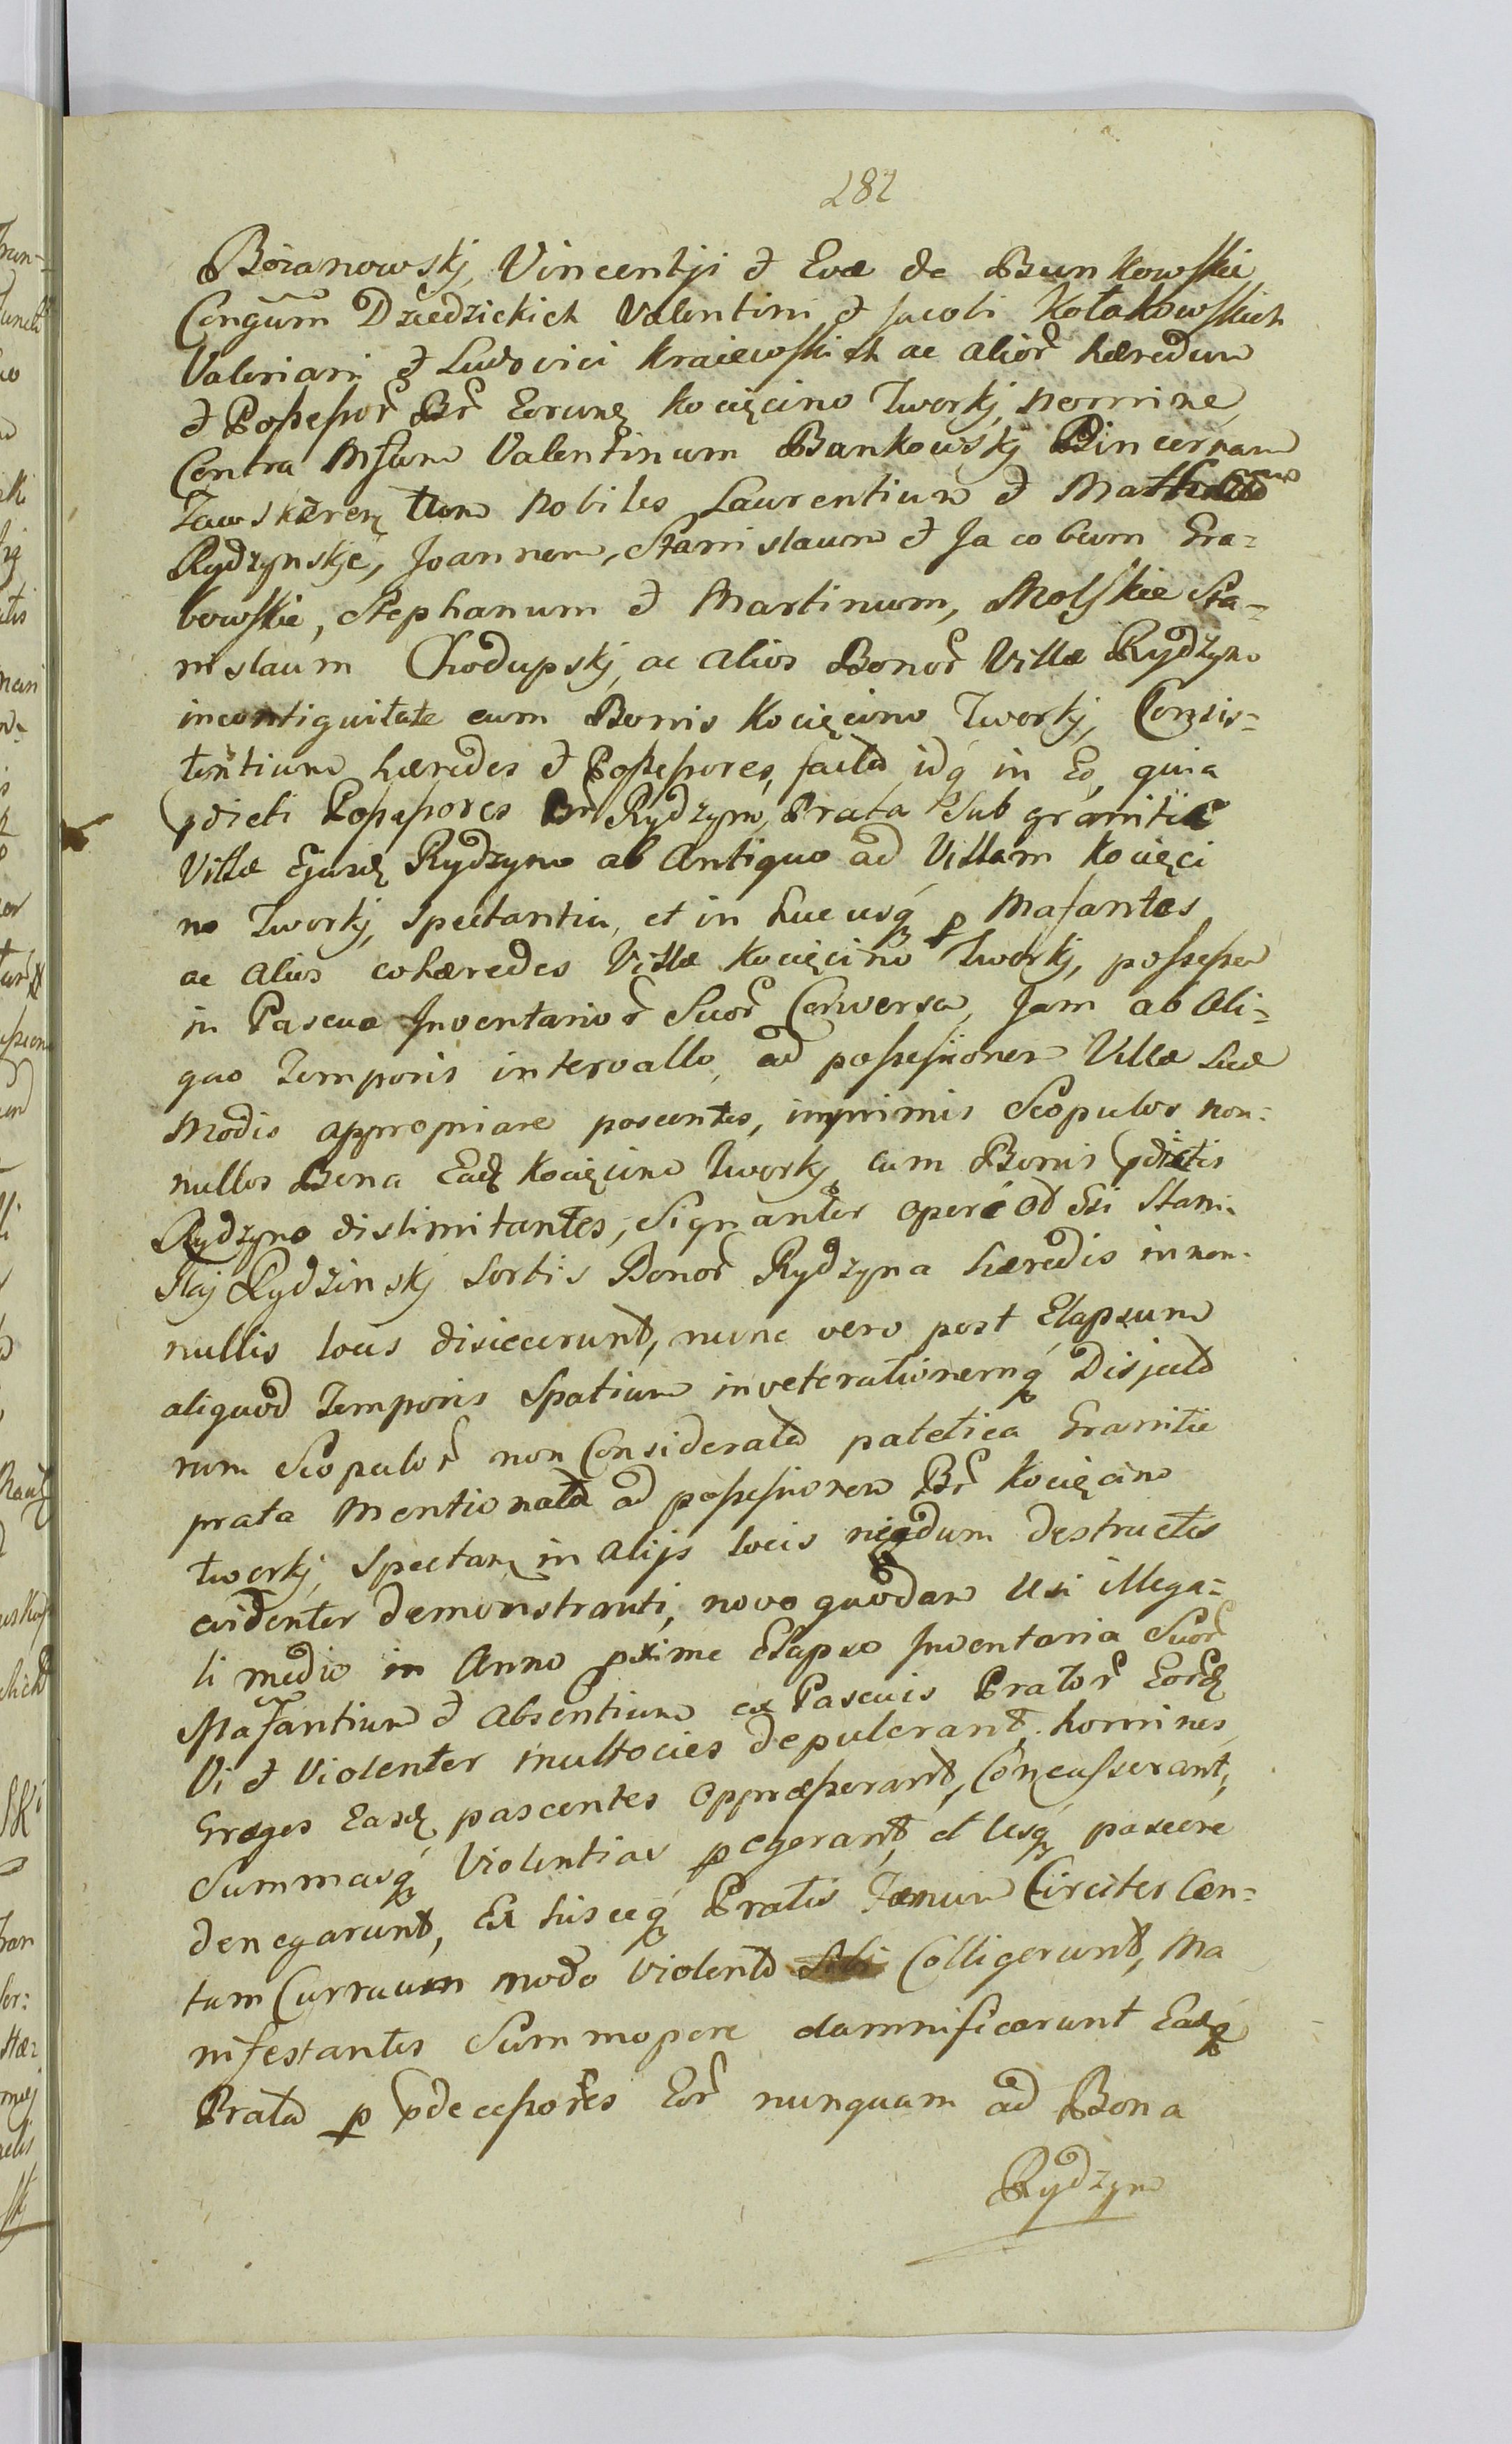 282
Bożanowskj, Vincentji & Evæ de Bunkowskie
Congûm Dziedzickich Valentini & Jacobi Kołakowskich
Valeriani & Ludovici Kraiewskich ac alior hæredum
& Possessor Br Eorund Kocięcino Tworkj, nomine
Contra Mfcum Valentinum Bankowskj Pincernam
nobiles Laurentium &
Rydzynskie, Joannem, Stanislaum & Jacobum Gra=
bowskie, Stephanum & Martinum, Molskie Sta=
nislaum Chodupskj, ac alios Bonor Villæ Rydzyno
incontiguitate cum Bonis Kocięcino Tworkj, Consis=
tentium hæredes & Possessores, facta idq in Eo, quia
pdicti Possessores Br Rydzyno, Prata Sub granitie
Villæ Ejusd Rydzyno ab Antiquo ad Villam Kocięci
no Tworkj, spectantia, et in hucusq p Mafantes
ac alios cohæredes Villæ Kocięcino Tworkj, possessa
in Pascua Inventarior Suor Conversa, Jam ab ali=
quo Temporis intervallo, ad possessionem Villæ Suæ
Modis appropriare poscentes, inprimis Scopulos non=
nullos Bona Ead Kocięcino Tworkj, cum Bonis pdictis
Rydzyno distimitantes, Signanter operé Stani=
Slaj Rydzinskj Sortis Bonor Rydzyna hæredis in non=
nullis locis disiecerunt, nunc vero post Elapsum
aliquod Temporis Spatium inveterationemq Disjecta
rum Scopulor non Considerata patetica Granitie
prata Mentionata ad possessionem Br Kocięcino
tworkj, Spectan in alijs locis nedum destructis
evidenter demonstranti, novo quodam Usi illega=
li medio in Anno pxime Elapso Inventaria Suor
Mafantium & Absentium ex Pascuis Prator Eord
Vi & Violenter multocies depulerant, homines
Greges Easd pascentes oppræsserant, Concusserant,
Summasq Violentias pegerant, et Usq pascere
denegarunt, Ex hisceq Pratis Fænum Circiter Cen=
tum Curruum modo Violento Sibi Colligerunt, Ma
nifestantes Summopere damnificarunt Eadq
Prata p pdecessores Eor nunquam ad Bona
Rydzyno